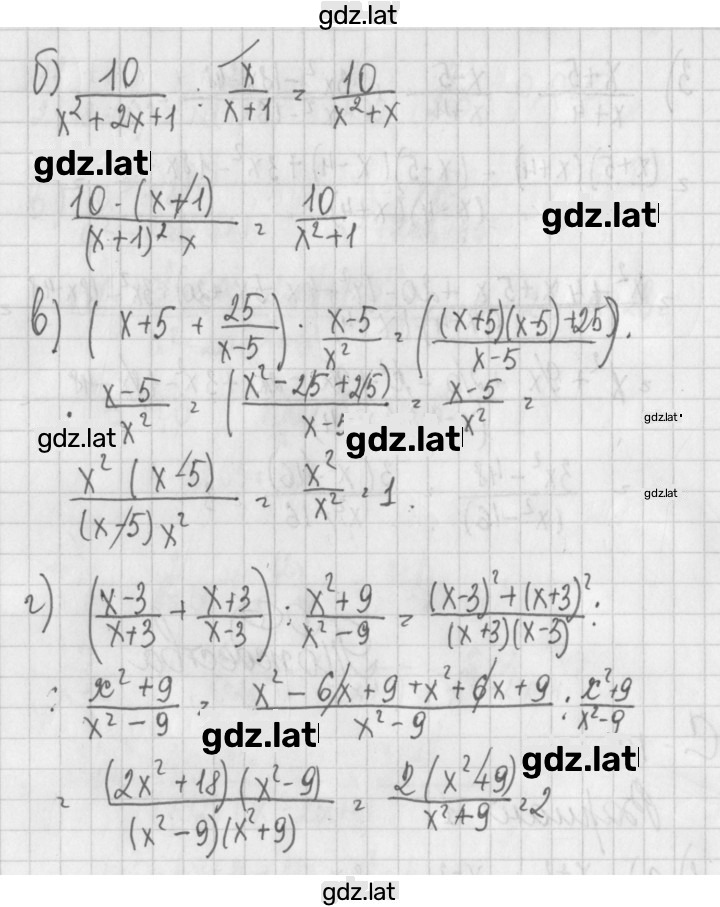 gdz.lat
б) 10/(x²+2x+1) : x/(x+1) = 10/(x²+x)
gdz.lat
(10-(x+1))/((x+1)² x) = 10/(x²+1)
gdz.lat
в) (x+5 + 25/(x-5)) · (x-5)/x² = (((x+5)(x-5)+25)/(x-5)) ·
· (x-5)/x² = ((x²-25+25)/(x-5) = (x-5)/x² =
gdz.lat
gdz.lat
gdz.lat
(x²(x-5))/((x-5)x²) = x²/x² = 1.
gdz.lat
г) ((x-3)/(x+3) + (x+3)/(x-3)) : (x²+9)/(x²-9) = ((x-3)²+(x+3)²)/((x+3)(x-3)) :
: (x²+9)/(x²-9) = (x²-6x+9+x²+6x+9)/(x²-9) : (x²+9)/(x²-9)
gdz.lat
gdz.lat
= ((2x²+18)(x²-9))/((x²-9)(x²+9)) = (2(x²+9))/(x²+9) = 2
gdz.lat